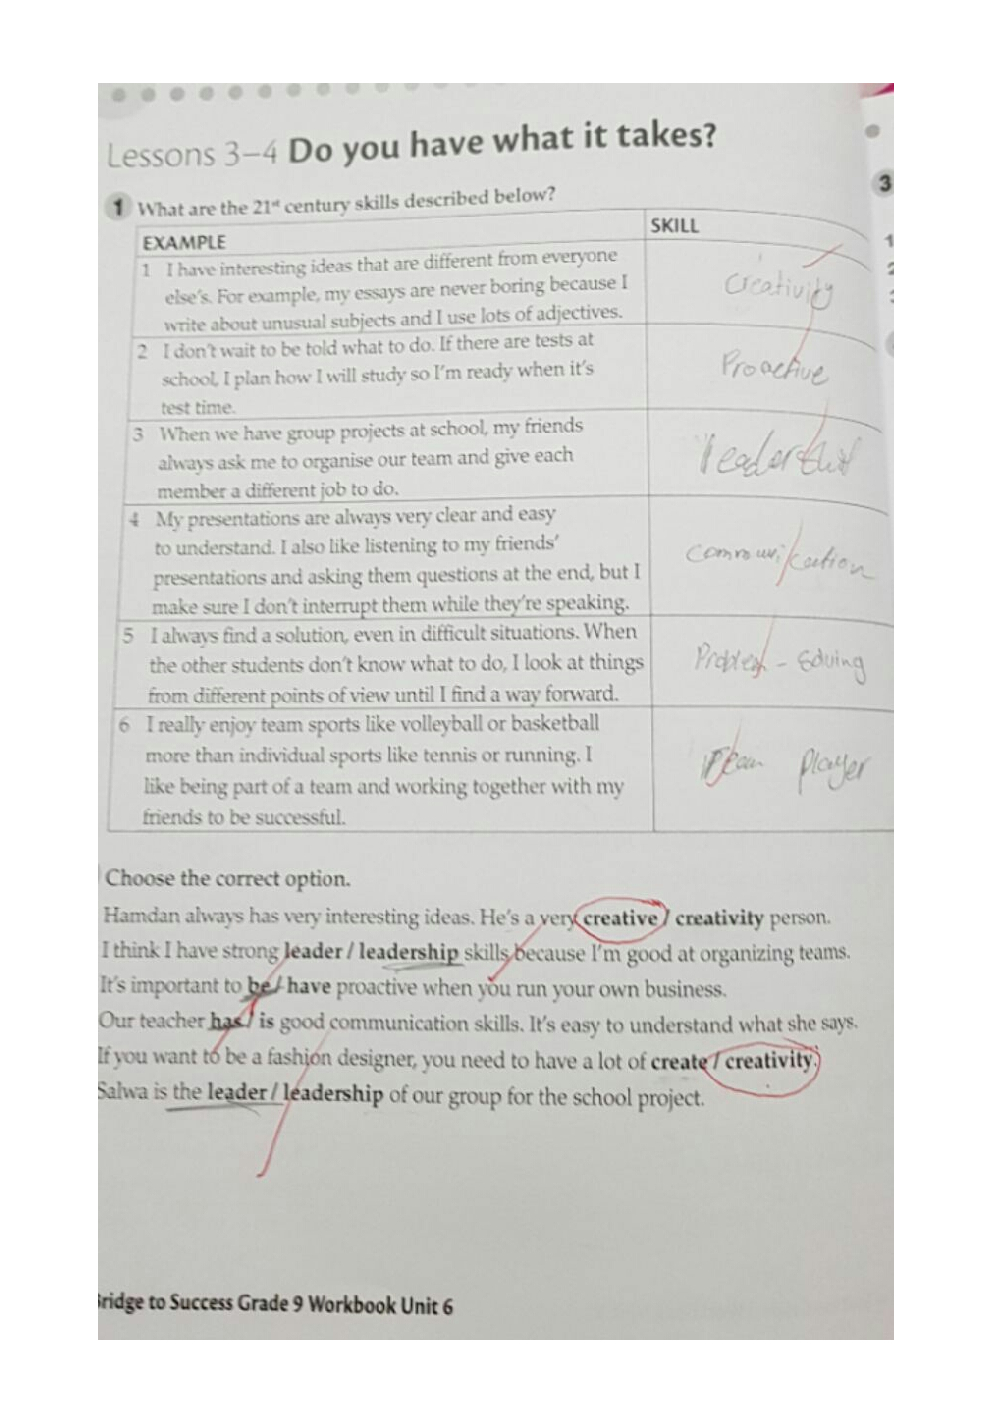 Lessons 3–4 Do you have what it takes?
3
1 What are the 21st century skills described below?
EXAMPLE SKILL
1 I have interesting ideas that are different from everyone
else's. For example, my essays are never boring because I
write about unusual subjects and I use lots of adjectives.
Creativity
2 I don't wait to be told what to do. If there are tests at
school, I plan how I will study so I'm ready when it's
test time.
Proactive
3 When we have group projects at school, my friends
always ask me to organise our team and give each
member a different job to do.
4 My presentations are always very clear and easy
to understand. I also like listening to my friends'
presentations and asking them questions at the end, but I
make sure I don't interrupt them while they're speaking.
Communication
5 I always find a solution, even in difficult situations. When
the other students don't know what to do, I look at things
from different points of view until I find a way forward.
Problem -
6 I really enjoy team sports like volleyball or basketball
more than individual sports like tennis or running. I
like being part of a team and working together with my
friends to be successful.
Team player
Choose the correct option.
Hamdan always has very interesting ideas. He's a very creative / creativity person.
I think I have strong leader / leadership skills because I'm good at organizing teams.
It's important to be / have proactive when you run your own business.
Our teacher has / is good communication skills. It's easy to understand what she says.
If you want to be a fashion designer, you need to have a lot of create / creativity.
Salwa is the leader / leadership of our group for the school project.
ridge to Success Grade 9 Workbook Unit 6